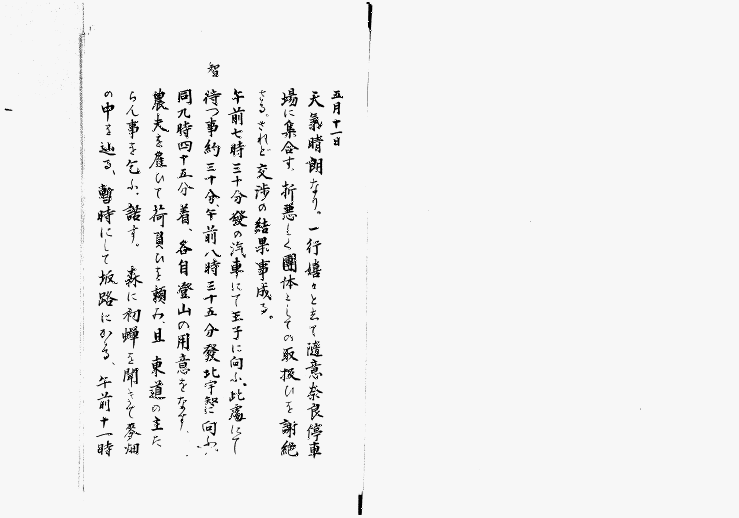 五月十一日
天氣晴朗なり。一行嬉々として隨意奈良停車
場に集合す、折悪しく團体としての取扱ひを謝絶
さる。されど交渉の結果事成る。
午前七時三十分發の汽車にて王子に向ふ、此處にて
待つ事約三十分、午前八時三十五分發北宇智に向ふ、
智
同九時四十五分着、各自登山の用意をなす、
農夫を雇ひて荷負ひを頼み、且東道の主た
らん事を乞ふ、諾す。森に初蟬を聞きて麥畑
の中を辿る、暫時にして坂路にかゝる、午前十一時